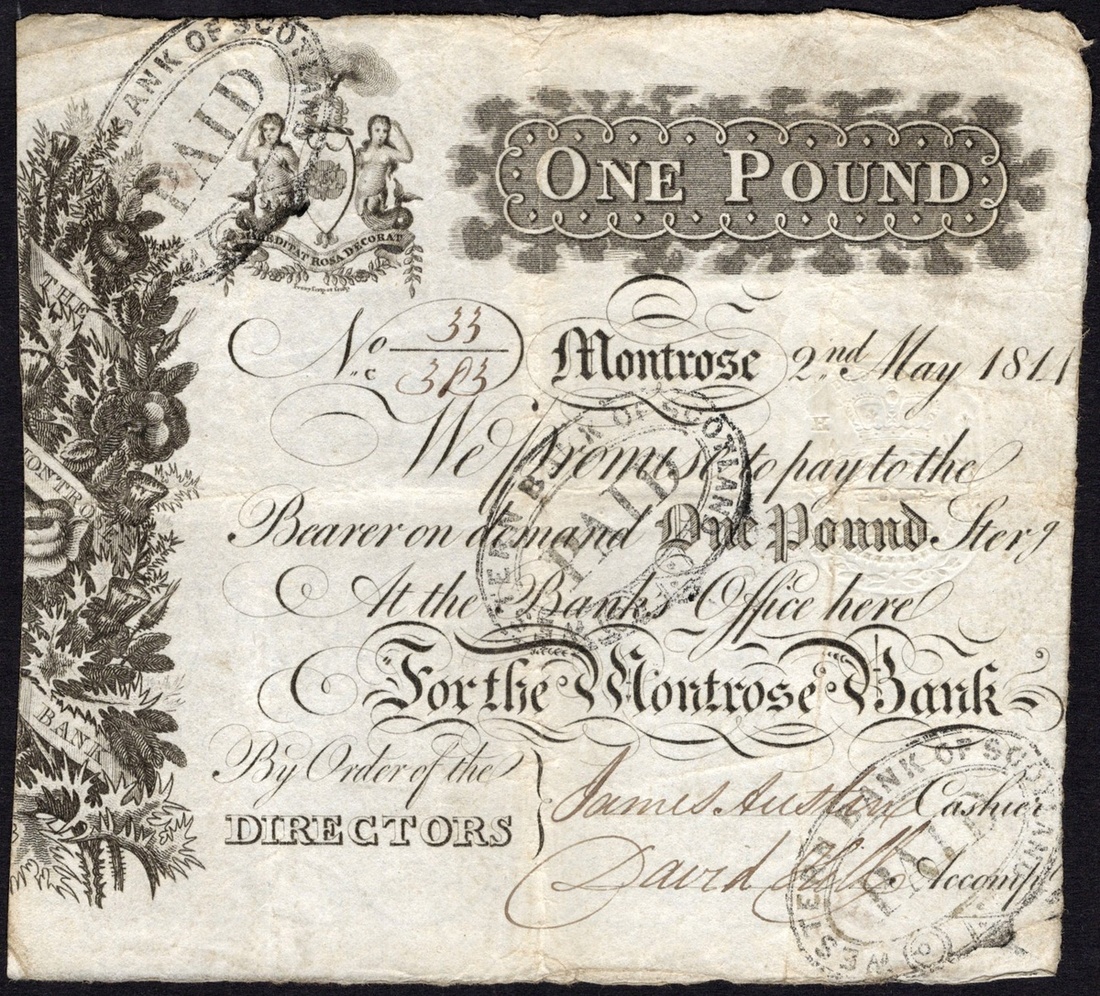 BANK OF SCOTLAND
PAID
MARE DITAT ROSA DECORAT
ONE POUND
THE
MONTRO
BANK
No 33
Montrose 2nd May 1814
We Promise to pay to the
Bearer on demand One Pound Sterg
At the Banks Office here
WESTERN BANK OF SCOTLAND
PAID
For the Montrose Bank
By Order of the
DIRECTORS
James Austin Cashier
David Hill Accompt
WESTERN BANK OF SCOTLAND
PAID